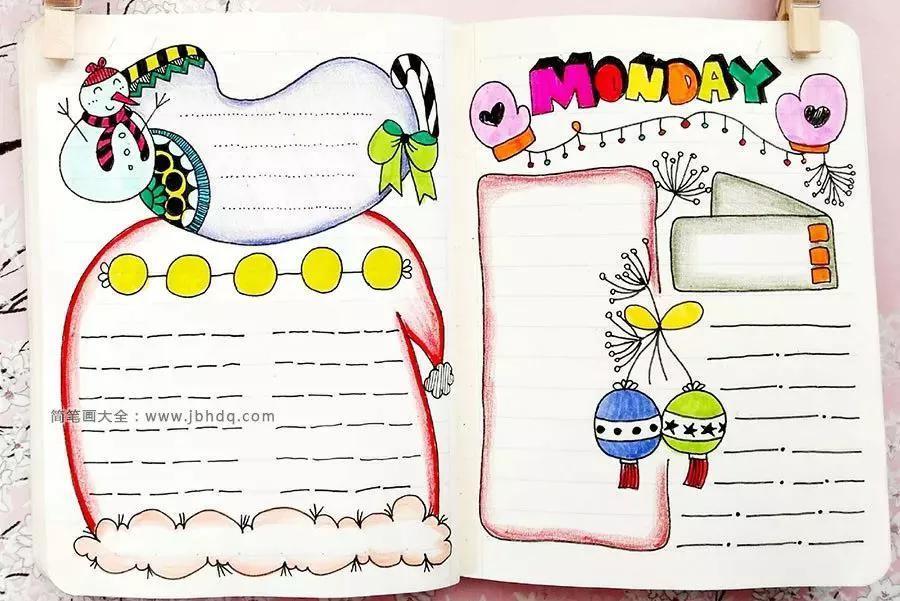 MONDAY
简笔画大全：www.jbhdq.com